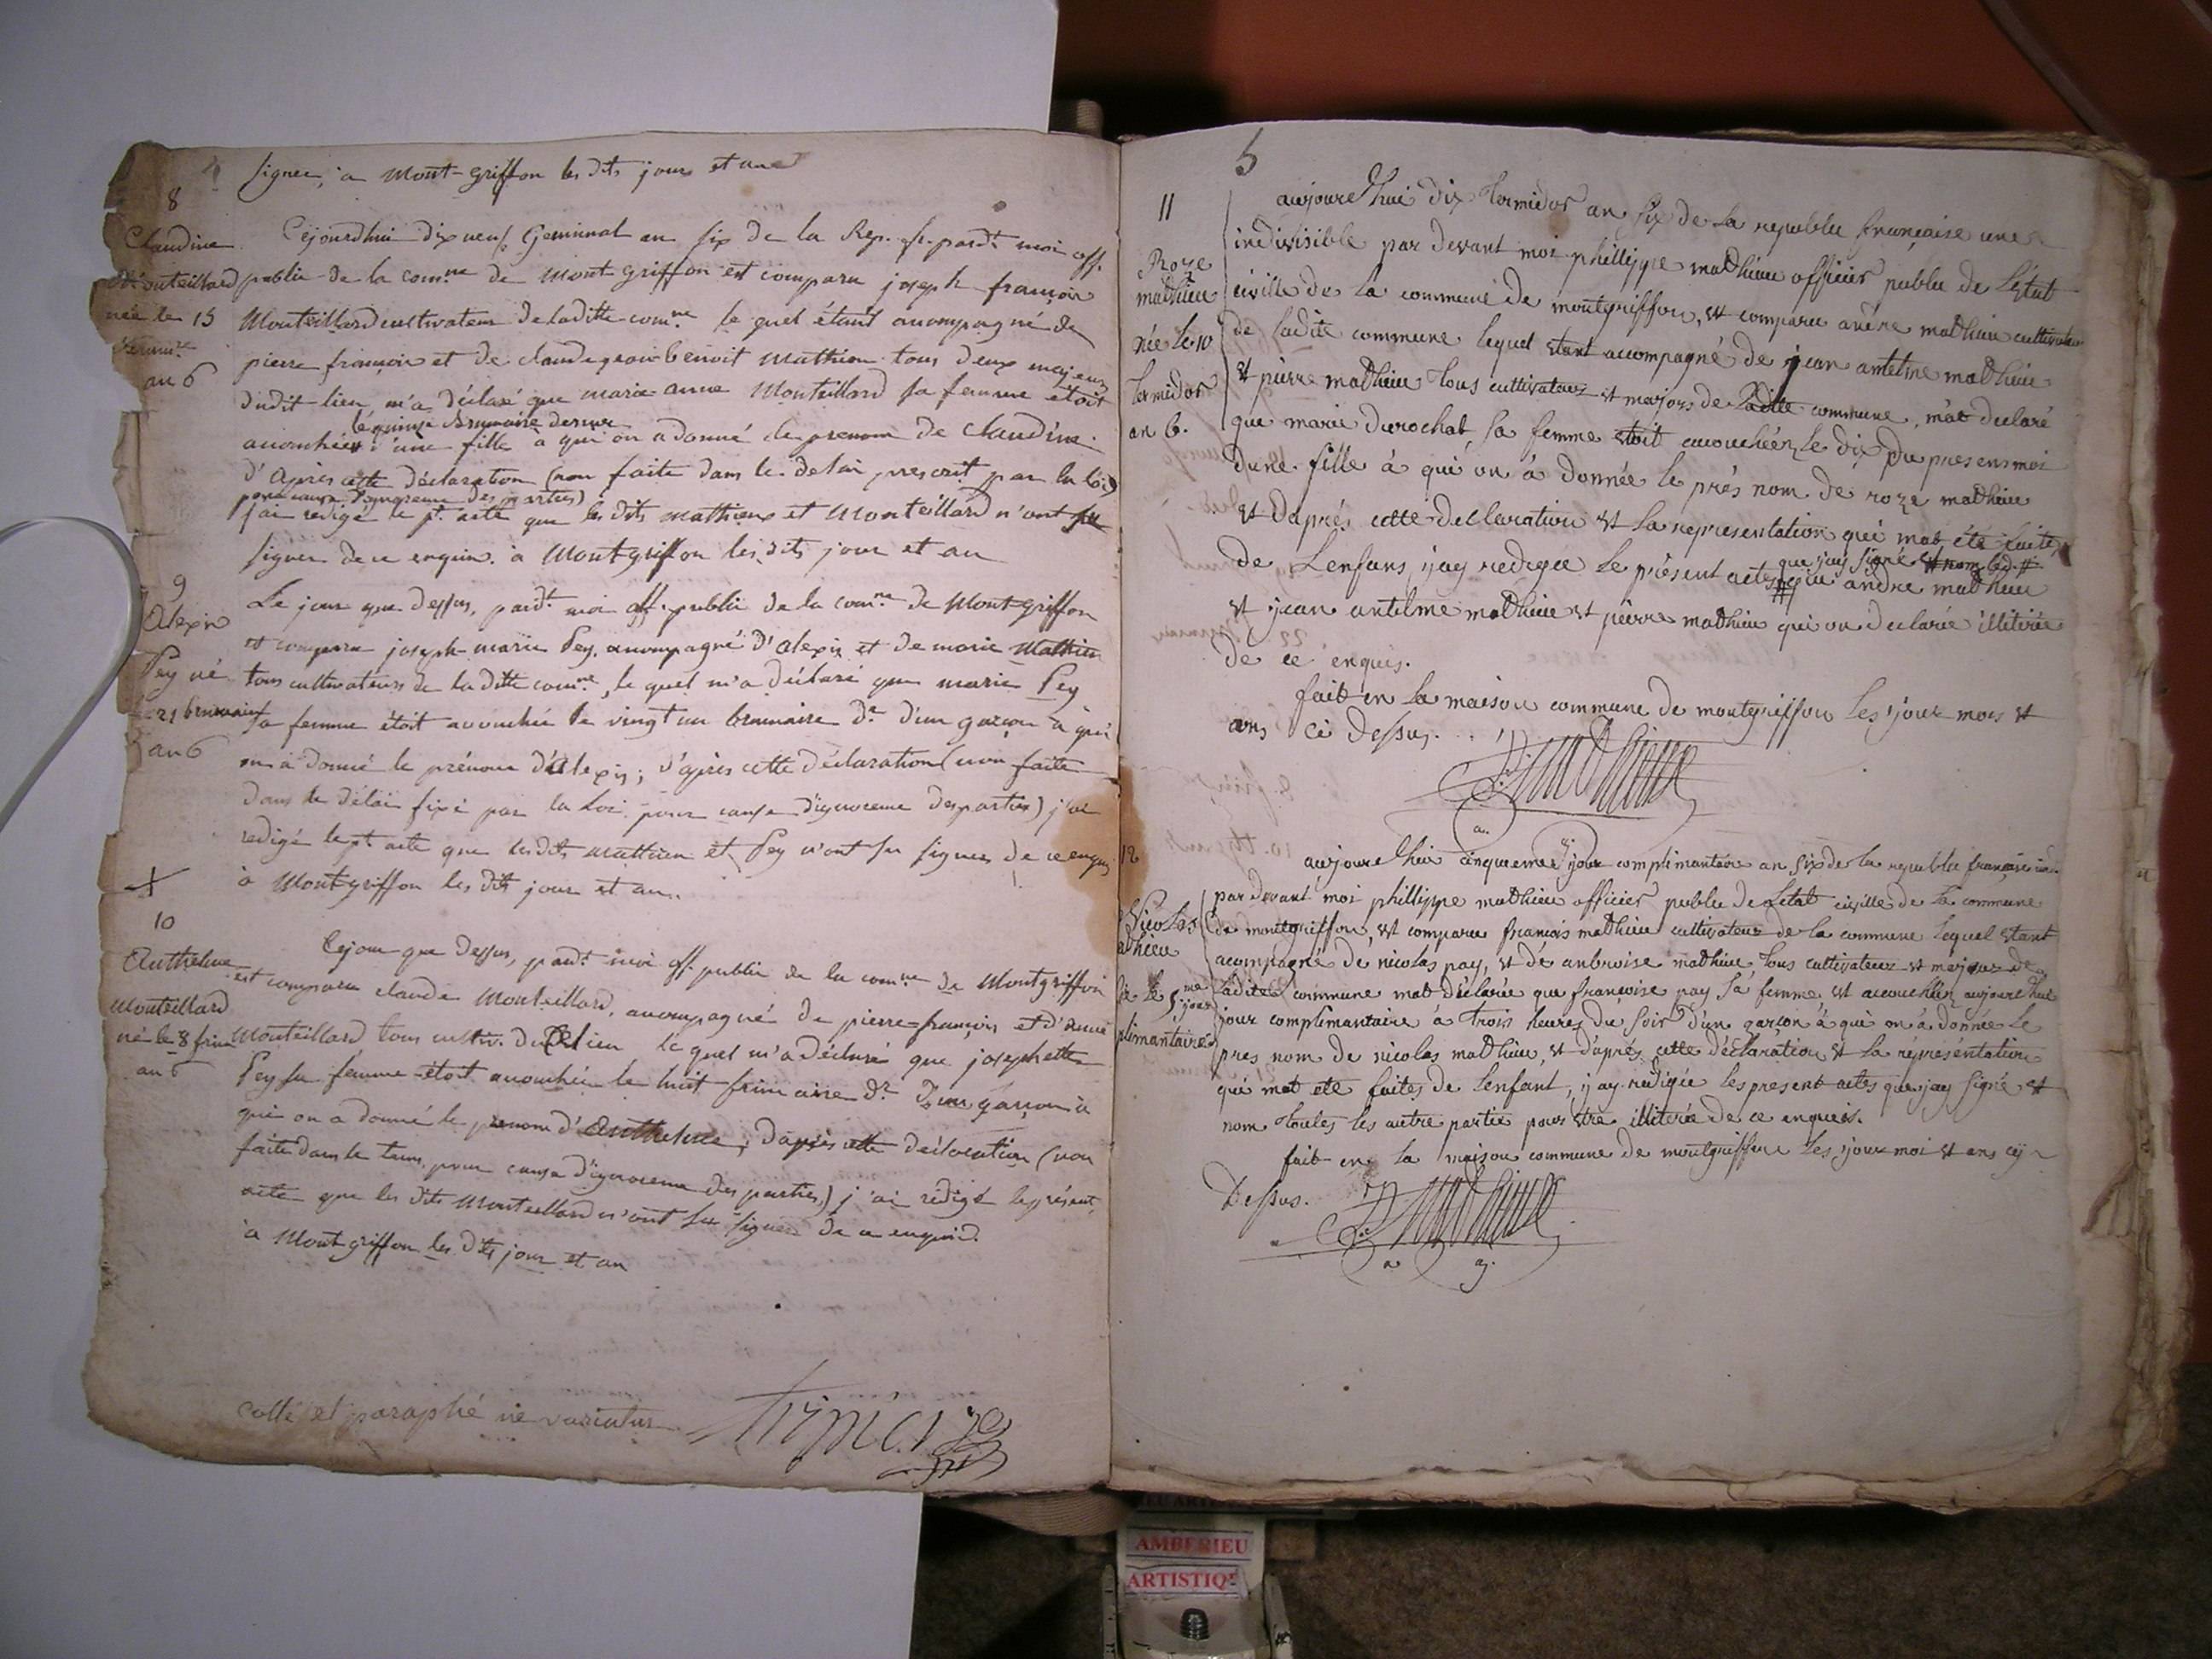 signer, a Mont-griffon les dits jours et an
8
Claudine
Monteillard
née le 15
brum.re
an 6
Cejourdhui dix neuf Germinal an six de la Rep. fr. pard.t moi off.
public de la com.ne de Mont griffon est comparu joseph françois
Monteillard cultivateur de laditte com.ne le quel étant accompagné de
pierre françois et de claude benoit Matthieu tous deux majeurs
dudit lieu m'a déclaré que marie anne Monteillard sa femme étoit
le quinze brumaire dernier
accouchée d'une fille a qui on a donné le prenom de Claudine.
D'après cette déclaration (non faite dans le delai prescrit par la loi)
pour cause d'ignorence des parties)
j'ai redigé le p.t acte que les dits matthieux et Monteillard n'ont su
signer de ce enquis. à Montgriffon les dits jour et an
9
Alexis
Pey né
21 brumaire
an 6
Le jour que dessus, pard.t moi off. public de la com.ne de Mont-griffon
est comparu joseph marie Pey, accompagné d'alexis et de marie Mathieu
tous cultivateurs de la ditte com.ne, le quel m'a déclaré que marie Pey
sa femme étoit accouchée le vingt un brumaire d.r d'un garçon à qui
on a donné le prénom d'Alexis; d'après cette déclaration (non faite
dans le délai fixé par la loi pour cause d'ignorence des parties) j'ai
redigé le p.t acte que les dits matthieu et Pey n'ont su signer de ce enquis
à Mont-griffon les dits jour et an.
10
Anthelme
Monteillard
né le 8 frim
an 6
Cejour que dessus, pard.t moi off. public de la com.ne de Montgriffon
est comparu claude Monteillard, accompagné de pierre-françois et d'
Monteillard tous cultiv. dudit lieu le quel m'a déclaré que josephette
Pey sa femme étoit accouchée le huit frimaire d.r d'un garçon à
qui on a donné le prenom d'Anthelme, d'après cette déclaration (non
faite dans le tems, pour cause d'ignorence des parties) j'ai rédigé le présent
acte que les dits Monteillard n'ont su signer de ce enquis.
à Mont griffon les dits jour et an
cotté et paraphé ne varietur
5
11
Roze
mathieu
née le 10
termidor
an 6.
aujourdhui dix termidor an six de la republie française une
indivisible par devant moi phillippe mathieu officier public de Létat
civille de la commune de montgriffon, est comparu andre mathieu cultivateur
de ladite commune lequel etant accompagné de jean antelme mathieu
et pierre mathieu tous cultivateur et majors de ladite commune, mat declaré
que marie durochat sa femme etoit accouchéez le dix du present moi
dune fille à qui on à donnée le prés nom de roze mathieu
et daprés cette declaration et la representation qui mat été faite
de Lenfans, jay redigée le présent actes que andre mathieu
que jay signé et nom led.
et jean antelme mathieu et pierre mathieu qui on declarée illiterée
de ce enquis.
fait en la maison commune de montgriffon les jour mois et
ans ci dessus.
P. mathieu
12
Nicolas
mathieu
né le 5me jour
complimantaire
aujourdhui cinquieme jour complimantaire an six de la republie française
par devant moi phillippe mathieu officier public de Létat civille de la commune
de montgriffon, est comparu françois mathieu cultivateur de la commune lequel etant
acompagné de nicolas pay, et de anbroise mathieu tous cultivateur et majour de
ladites commune mat déclarée que françoise pay sa femme est accouchéez aujourdhui
jour complimantaire à trois heures du soir d'un garçon à qui on à donnée le
pres nom de nicolas mathieu, et d'aprés cette déclaration et la représéntation
qui mat eté faites de lenfant, jay redigée les present actes que jay signé et
nom toutes les autre partie pour etre illiterée de ce enqueis.
fait en la maison commune de montgriffon les jour moi et ans cy
Dessus.
P. mathieu
AMBERIEU
ARTISTIQ